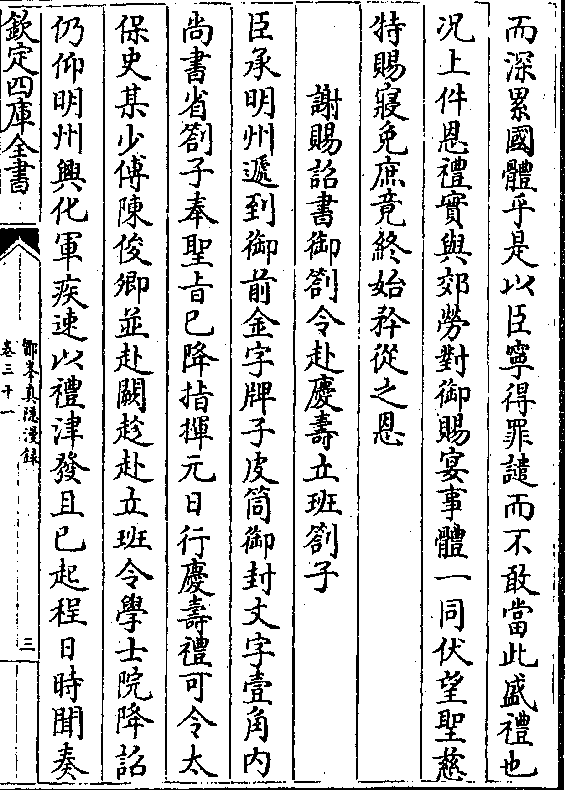 而深累國體乎是以臣寧得罪譴而不敢當此盛禮也
况上件恩禮實與郊勞對御賜宴事體一同伏望聖慈
特賜寢免庶竟終始矜從之恩
謝賜詔書御劄令赴慶壽立班劄子
臣承明州遞到御前金字牌子皮筒御封文字壹角内
尚書省劄子奉聖旨已降指揮元日行慶壽禮可令太
保史某少傅陳俊卿並赴闕趁赴立班令學士院降詔
仍仰明州興化軍疾速以禮津發且已起程日時聞奏
欽定四庫全書
鄮峯真隠漫錄
卷三十一
三